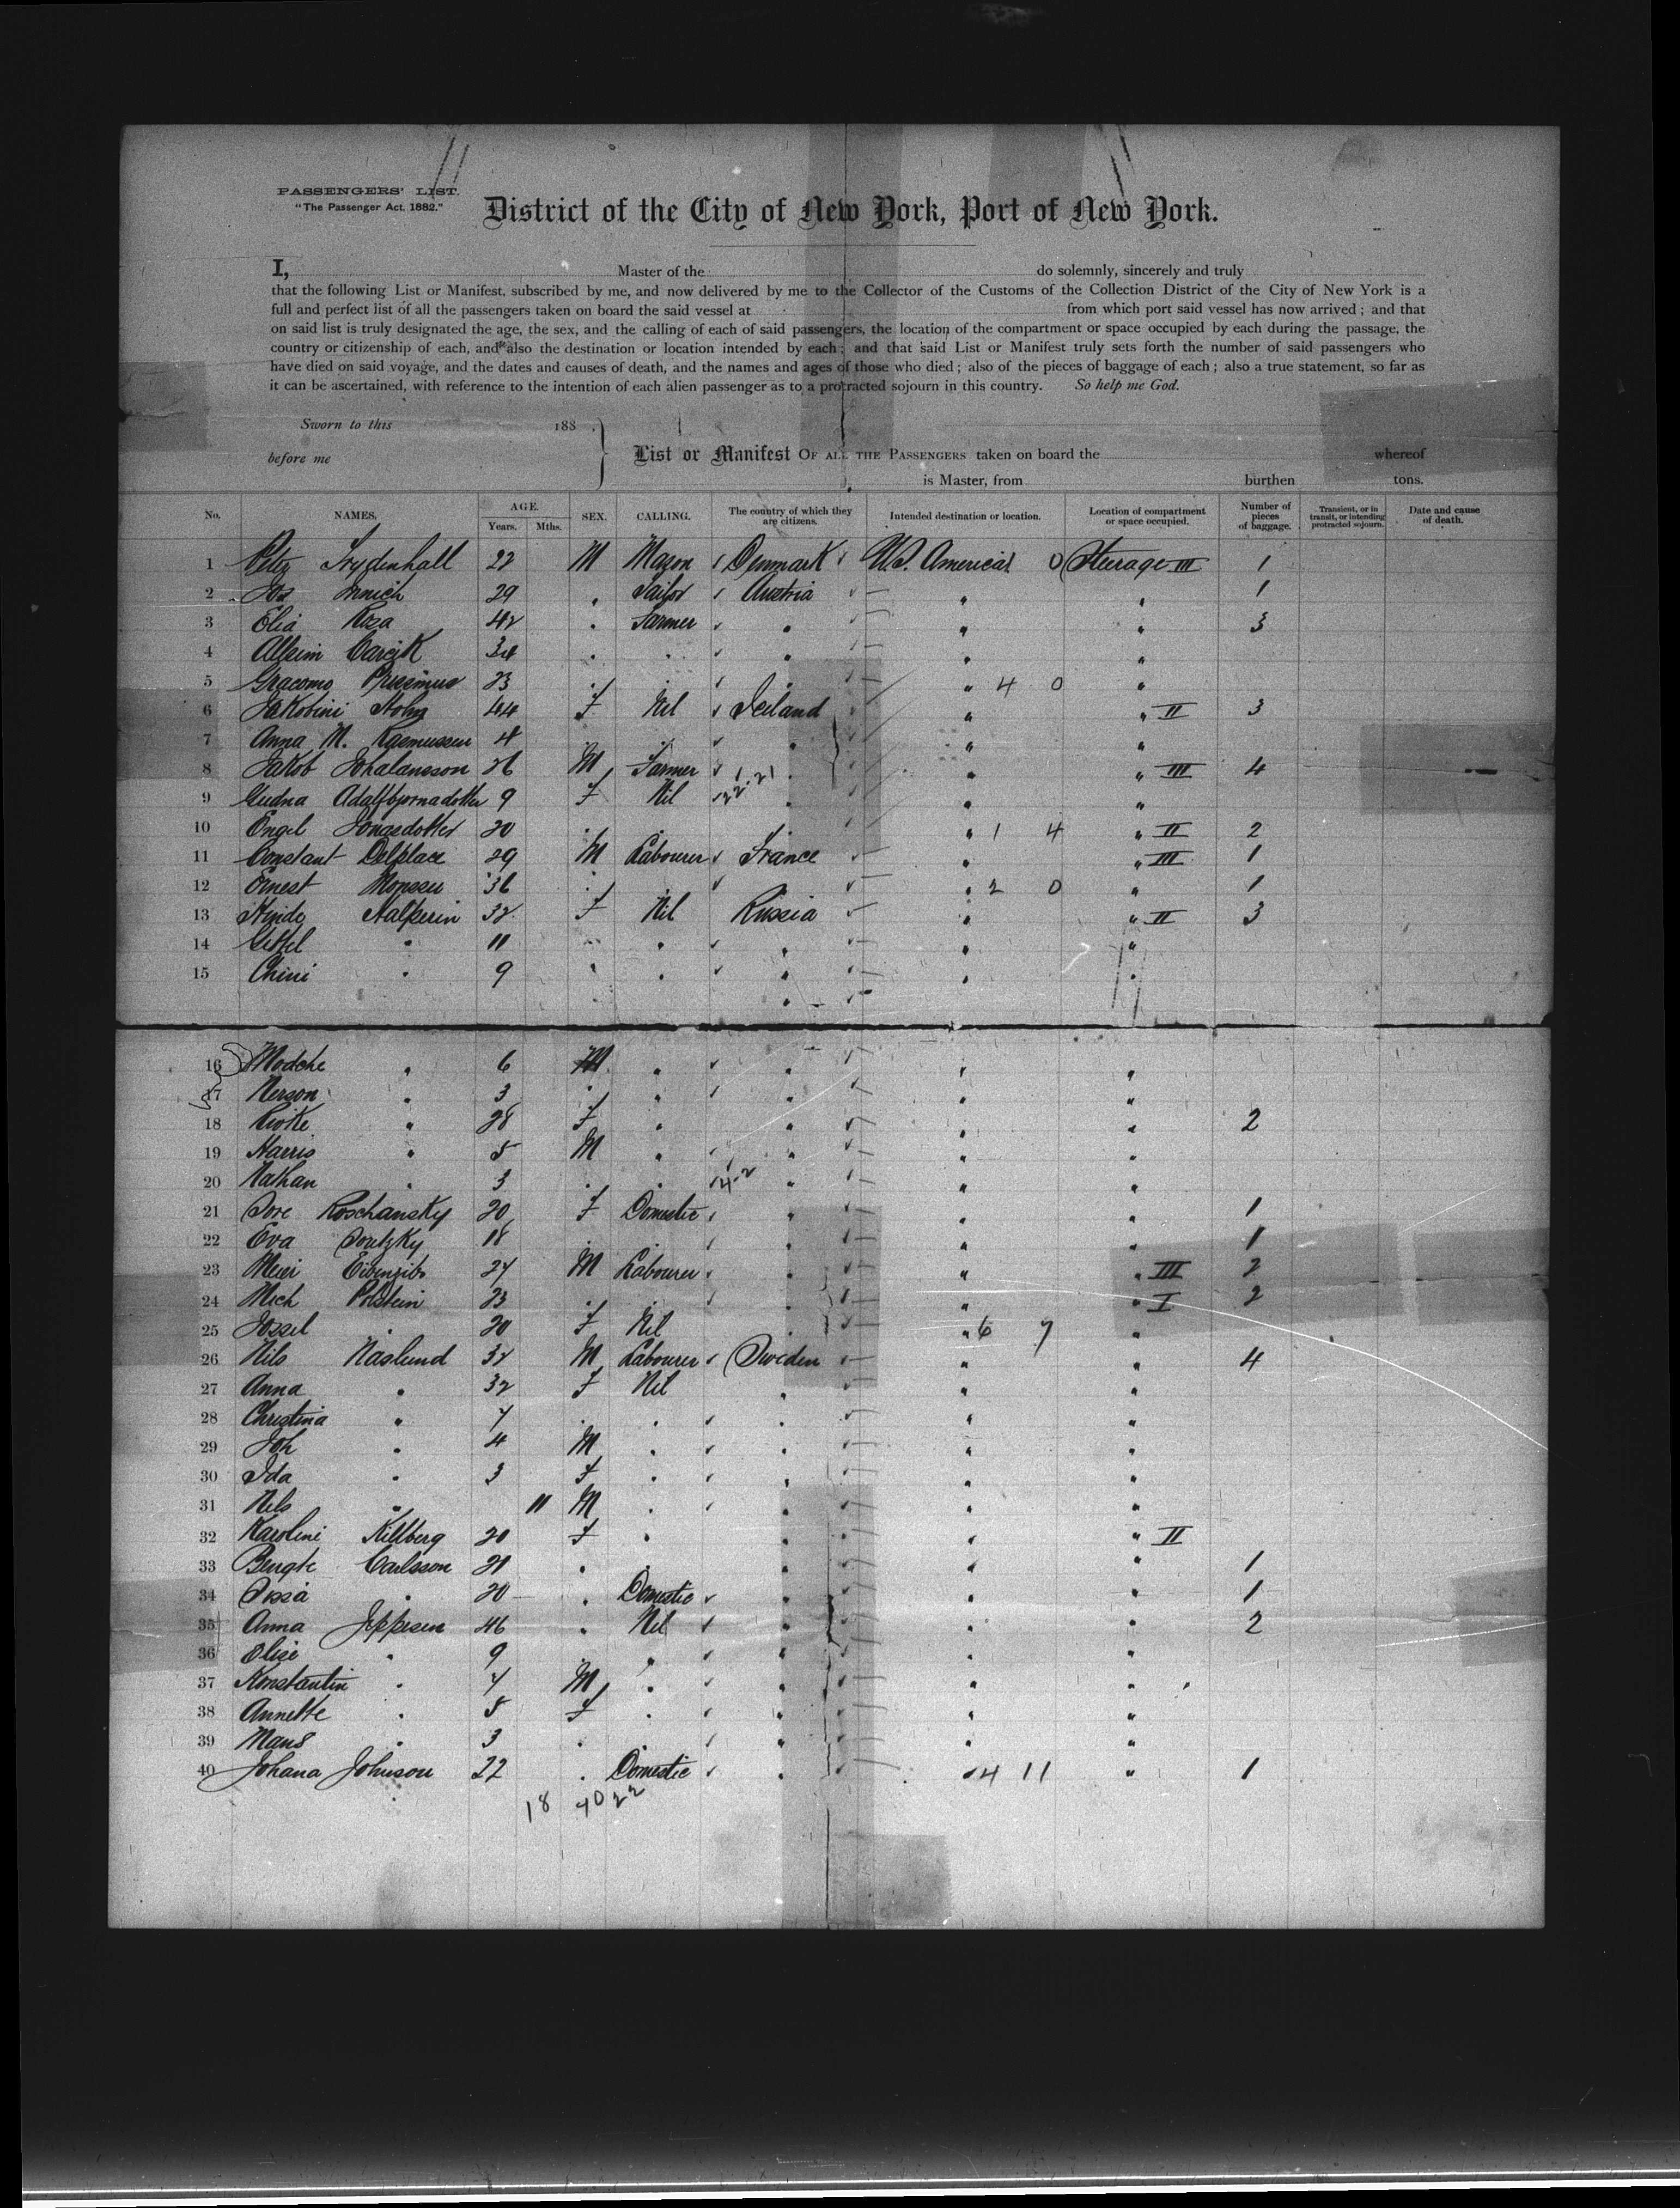 PASSENGERS' LIST.
"The Passenger Act, 1882."
District of the City of New York, Port of New York.
I, Master of the do solemnly, sincerely and truly
that the following List or Manifest, subscribed by me, and now delivered by me to the Collector of the Customs of the Collection District of the City of New York is a
full and perfect list of all the passengers taken on board the said vessel at from which port said vessel has now arrived ; and that
on said list is truly designated the age, the sex, and the calling of each of said passengers, the location of the compartment or space occupied by each during the passage, the
country or citizenship of each, and also the destination or location intended by each ; and that said List or Manifest truly sets forth the number of said passengers who
have died on said voyage, and the dates and causes of death, and the names and ages of those who died ; also of the pieces of baggage of each ; also a true statement, so far as
it can be ascertained, with reference to the intention of each alien passenger as to a protracted sojourn in this country. So help me God.
Sworn to this 188 .
before me
List or Manifest OF ALL THE PASSENGERS taken on board the whereof
is Master, from burthen tons.
No. NAMES. AGE. Years. Mths. SEX. CALLING. The country of which they are citizens. Intended destination or location. Location of compartment or space occupied. Number of pieces of baggage. Transient, or in transit, or intending protracted sojourn. Date and cause of death.
1 Peter 22 M Mason Denmark U.S. America 0 Steerage III 1
2 Jos 29 " Austria " " 1
3 Elia Roza 42 " Farmer " " " 3
4 34 " " " " "
5 23 " " " " 4 0 "
6 44 F Nil Iceland " " II 3
7 Anna M. Rasmussen 4 " " " " "
8 Jakob 26 M Farmer " " " III 4
9 Gudna 9 F Nil " " "
10 Engel 20 " " " " 1 4 " II 2
11 Constant Delplace 29 M Labourer France " " III 1
12 Ernest 36 " " " " 2 0 " 1
13 Hinde Halperin 32 F Nil Russia " " II 3
14 Gittel " 11 " " " " "
15 Chini " 9 " " " " "
16 Modche " 6 M " " " "
17 Nerson " 3 " " " " "
18 Rivke " 28 F " " " " 2
19 Harris " 5 M " " " "
20 Nathan " 3 " " " " "
21 Sore Roschansky 20 F Domestic " " " 1
22 Eva 18 " " " " " 1
23 Meier 24 M Labourer " " " III 2
24 Mich Polstein 23 " " " " " I 2
25 Jossel " 20 F Nil " " 6 7 "
26 Nils Naslund 32 M Labourer Sweden " " 4
27 Anna " 32 F Nil " " "
28 Christina " 7 " " " " "
29 Joh " 4 M " " " "
30 Ida " 3 F " " " "
31 Nils " 11 M " " " "
32 Karolini Killberg 20 F " " " " II
33 Bengte Carlsson 21 " " " " " 1
34 " 20 " Domestic " " " 1
35 Anna Jeppesen 46 " Nil " " " 2
36 Elise " 9 " " " " "
37 Konstantin " 7 M " " " "
38 Annette " 5 F " " " "
39 Mans " 3 " " " " "
40 Johana Johnson 22 " Domestic " " 4 11 " 1
18 40 22